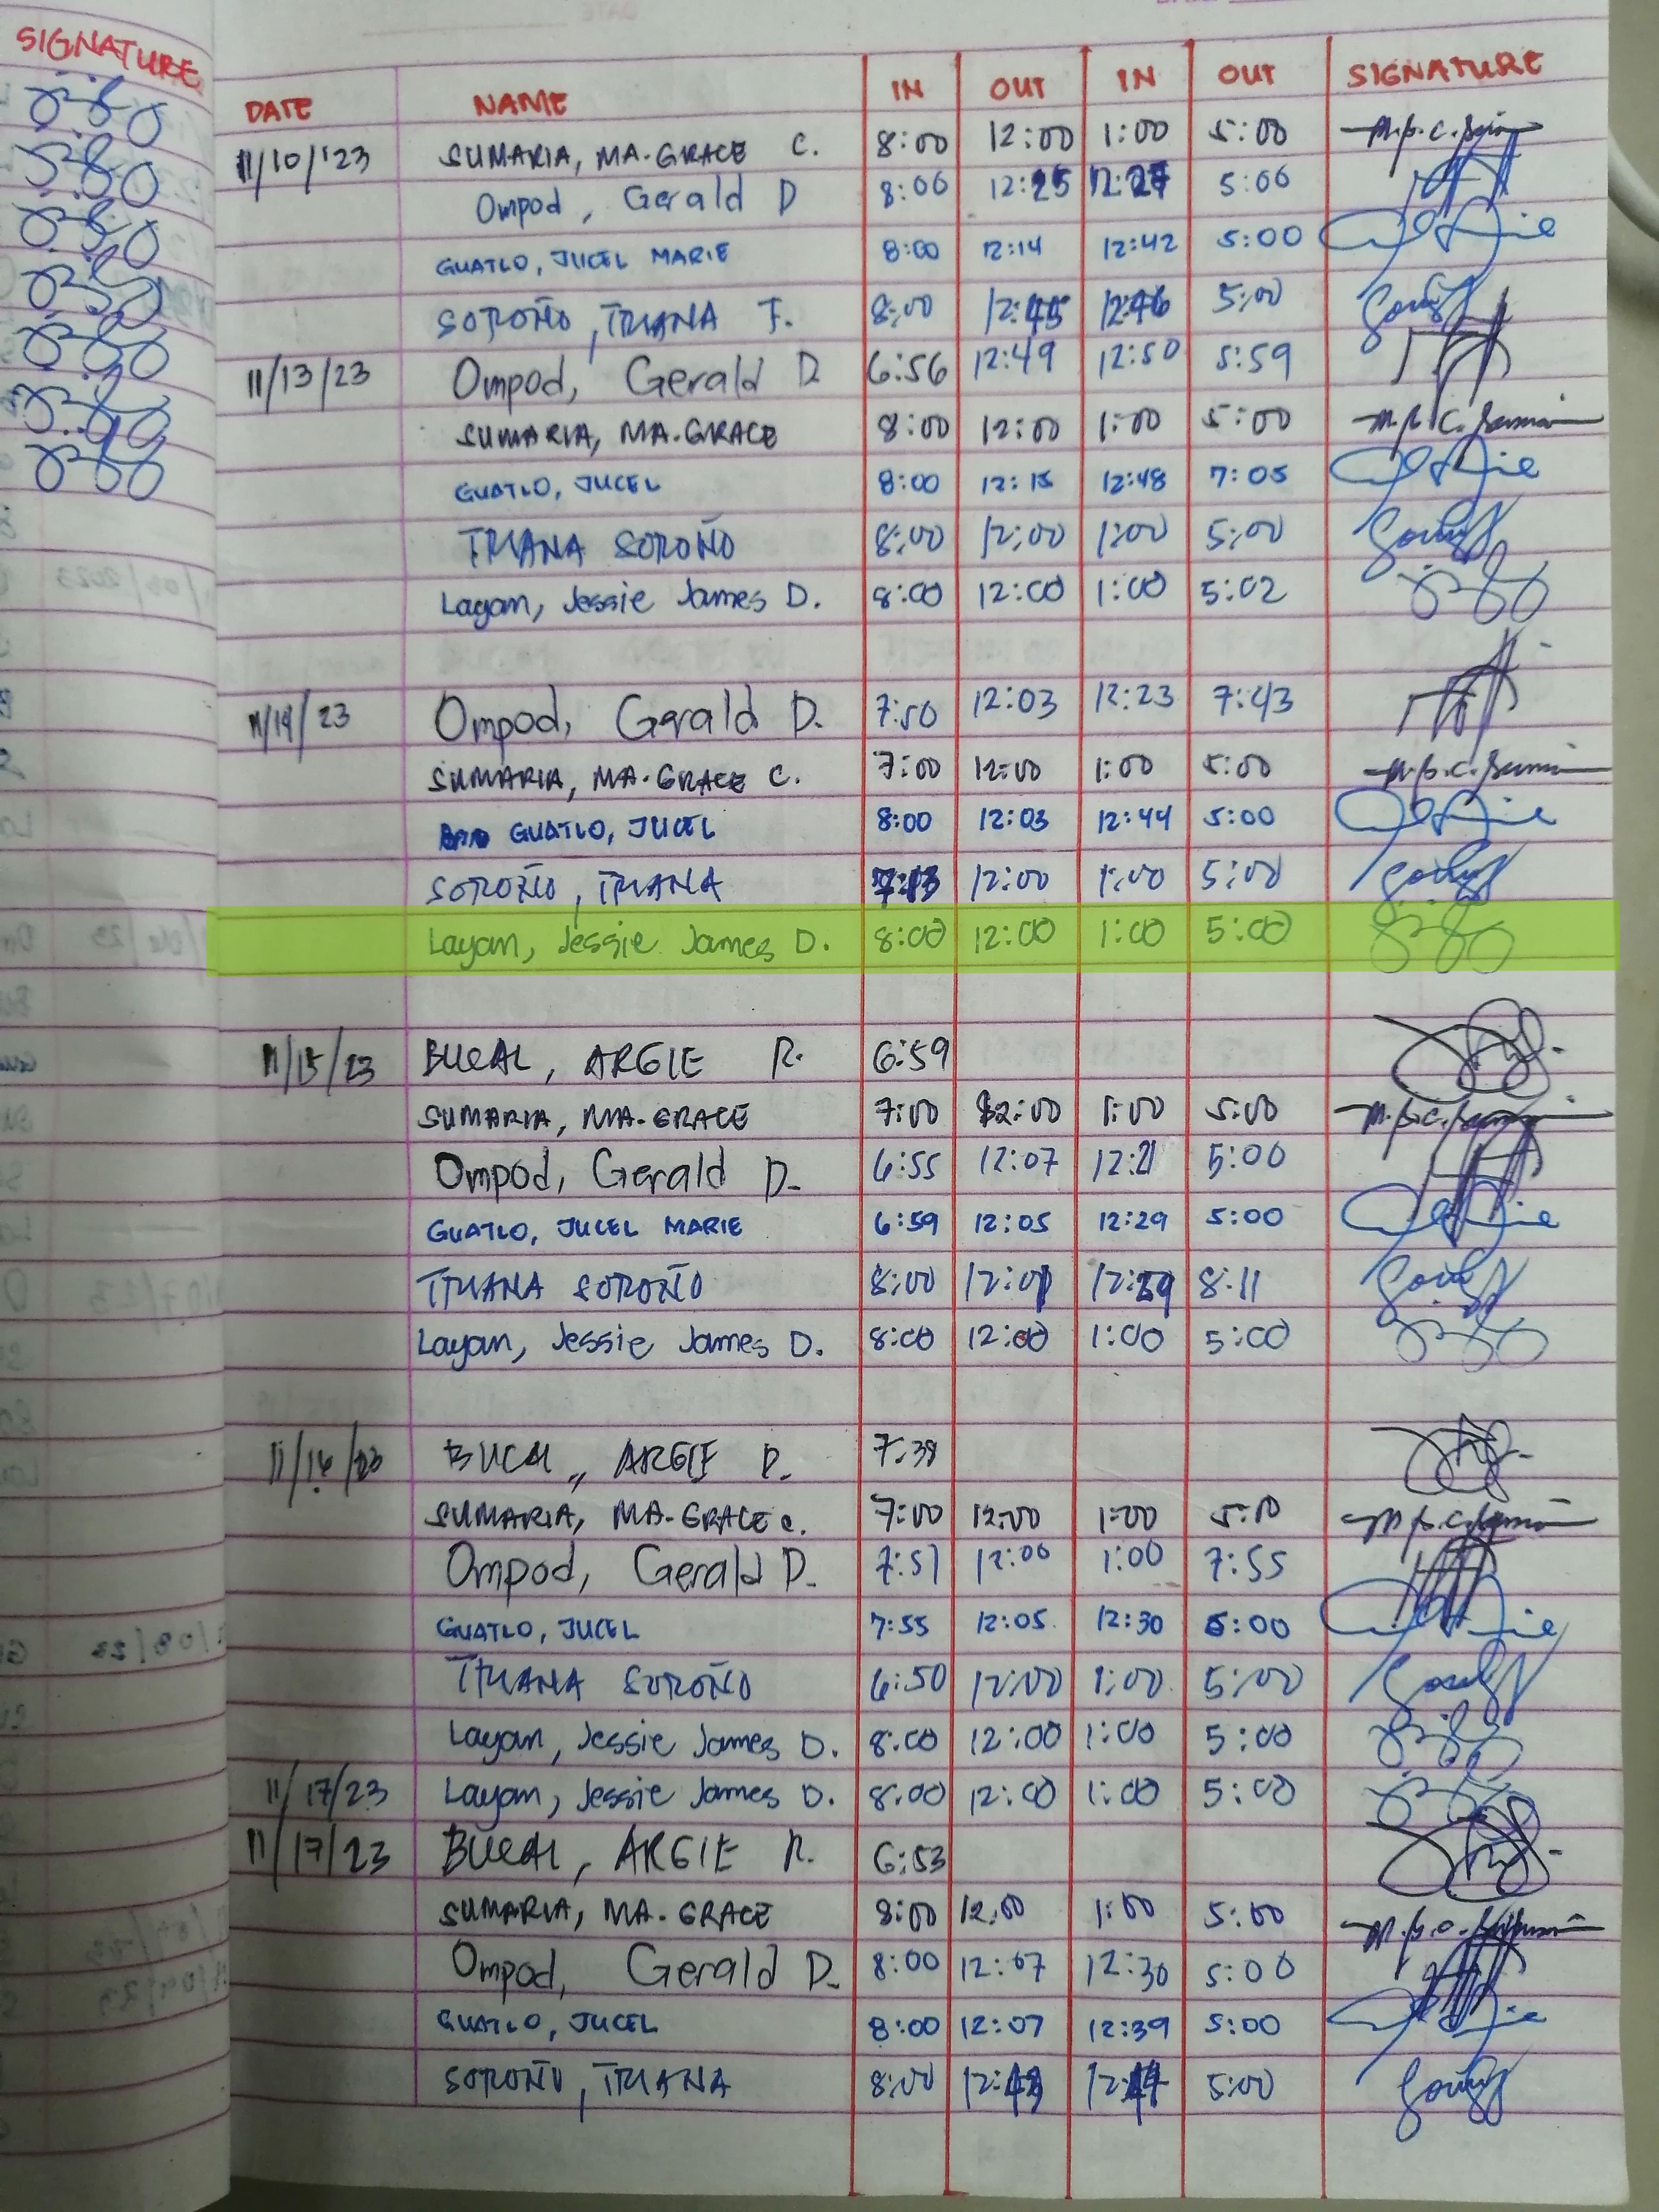 SIGNATURE
DATE NAME IN OUT IN OUT SIGNATURE
11/10/'23 SUMARIA, MA. GRACE C. 8:00 12:00 1:00 5:00
Ompod, Gerald D 8:06 12:25 12:27 5:06
GUATLO, JUCEL MARIE 8:00 12:14 12:42 5:00
SOROÑO, TRIANA F. 8:00 12:45 12:46 5:00
11/13/23 Ompod, Gerald D 6:56 12:49 12:50 5:59
SUMARIA, MA. GRACE 8:00 12:00 1:00 5:00
GUATLO, JUCEL 8:00 12:15 12:48 7:05
TRIANA SOROÑO 8:00 12:00 1:00 5:00
Layan, Jessie James D. 8:00 12:00 1:00 5:02
11/14/23 Ompod, Gerald D. 7:50 12:03 12:23 7:43
SUMARIA, MA. GRACE C. 7:00 12:00 1:00 5:00
GUATLO, JUCEL 8:00 12:03 12:44 5:00
SOROÑO, TRIANA 7:13 12:00 1:00 5:00
Layan, Jessie James D. 8:00 12:00 1:00 5:00
11/15/23 BUCAL, ARGIE R. 6:59
SUMARIA, MA. GRACE 7:00 12:00 1:00 5:00
Ompod, Gerald D. 6:55 12:07 12:21 5:00
GUATLO, JUCEL MARIE 6:59 12:05 12:29 5:00
TRIANA SOROÑO 8:00 12:01 12:29 8:11
Layan, Jessie James D. 8:00 12:00 1:00 5:00
11/16/23 BUCAL, ARGIE R. 7:38
SUMARIA, MA. GRACE C. 7:00 12:00 1:00 5:00
Ompod, Gerald D. 7:51 12:06 1:00 7:55
GUATLO, JUCEL 7:55 12:05 12:30 5:00
TRIANA SOROÑO 6:50 12:00 1:00 5:00
Layan, Jessie James D. 8:00 12:00 1:00 5:00
11/17/23 Layan, Jessie James D. 8:00 12:00 1:00 5:00
11/17/23 BUCAL, ARGIE R. 6:53
SUMARIA, MA. GRACE 8:00 12:00 1:00 5:00
Ompod, Gerald D. 8:00 12:07 12:30 5:00
GUATLO, JUCEL 8:00 12:07 12:39 5:00
SOROÑO, TRIANA 8:00 12:43 12:44 5:00